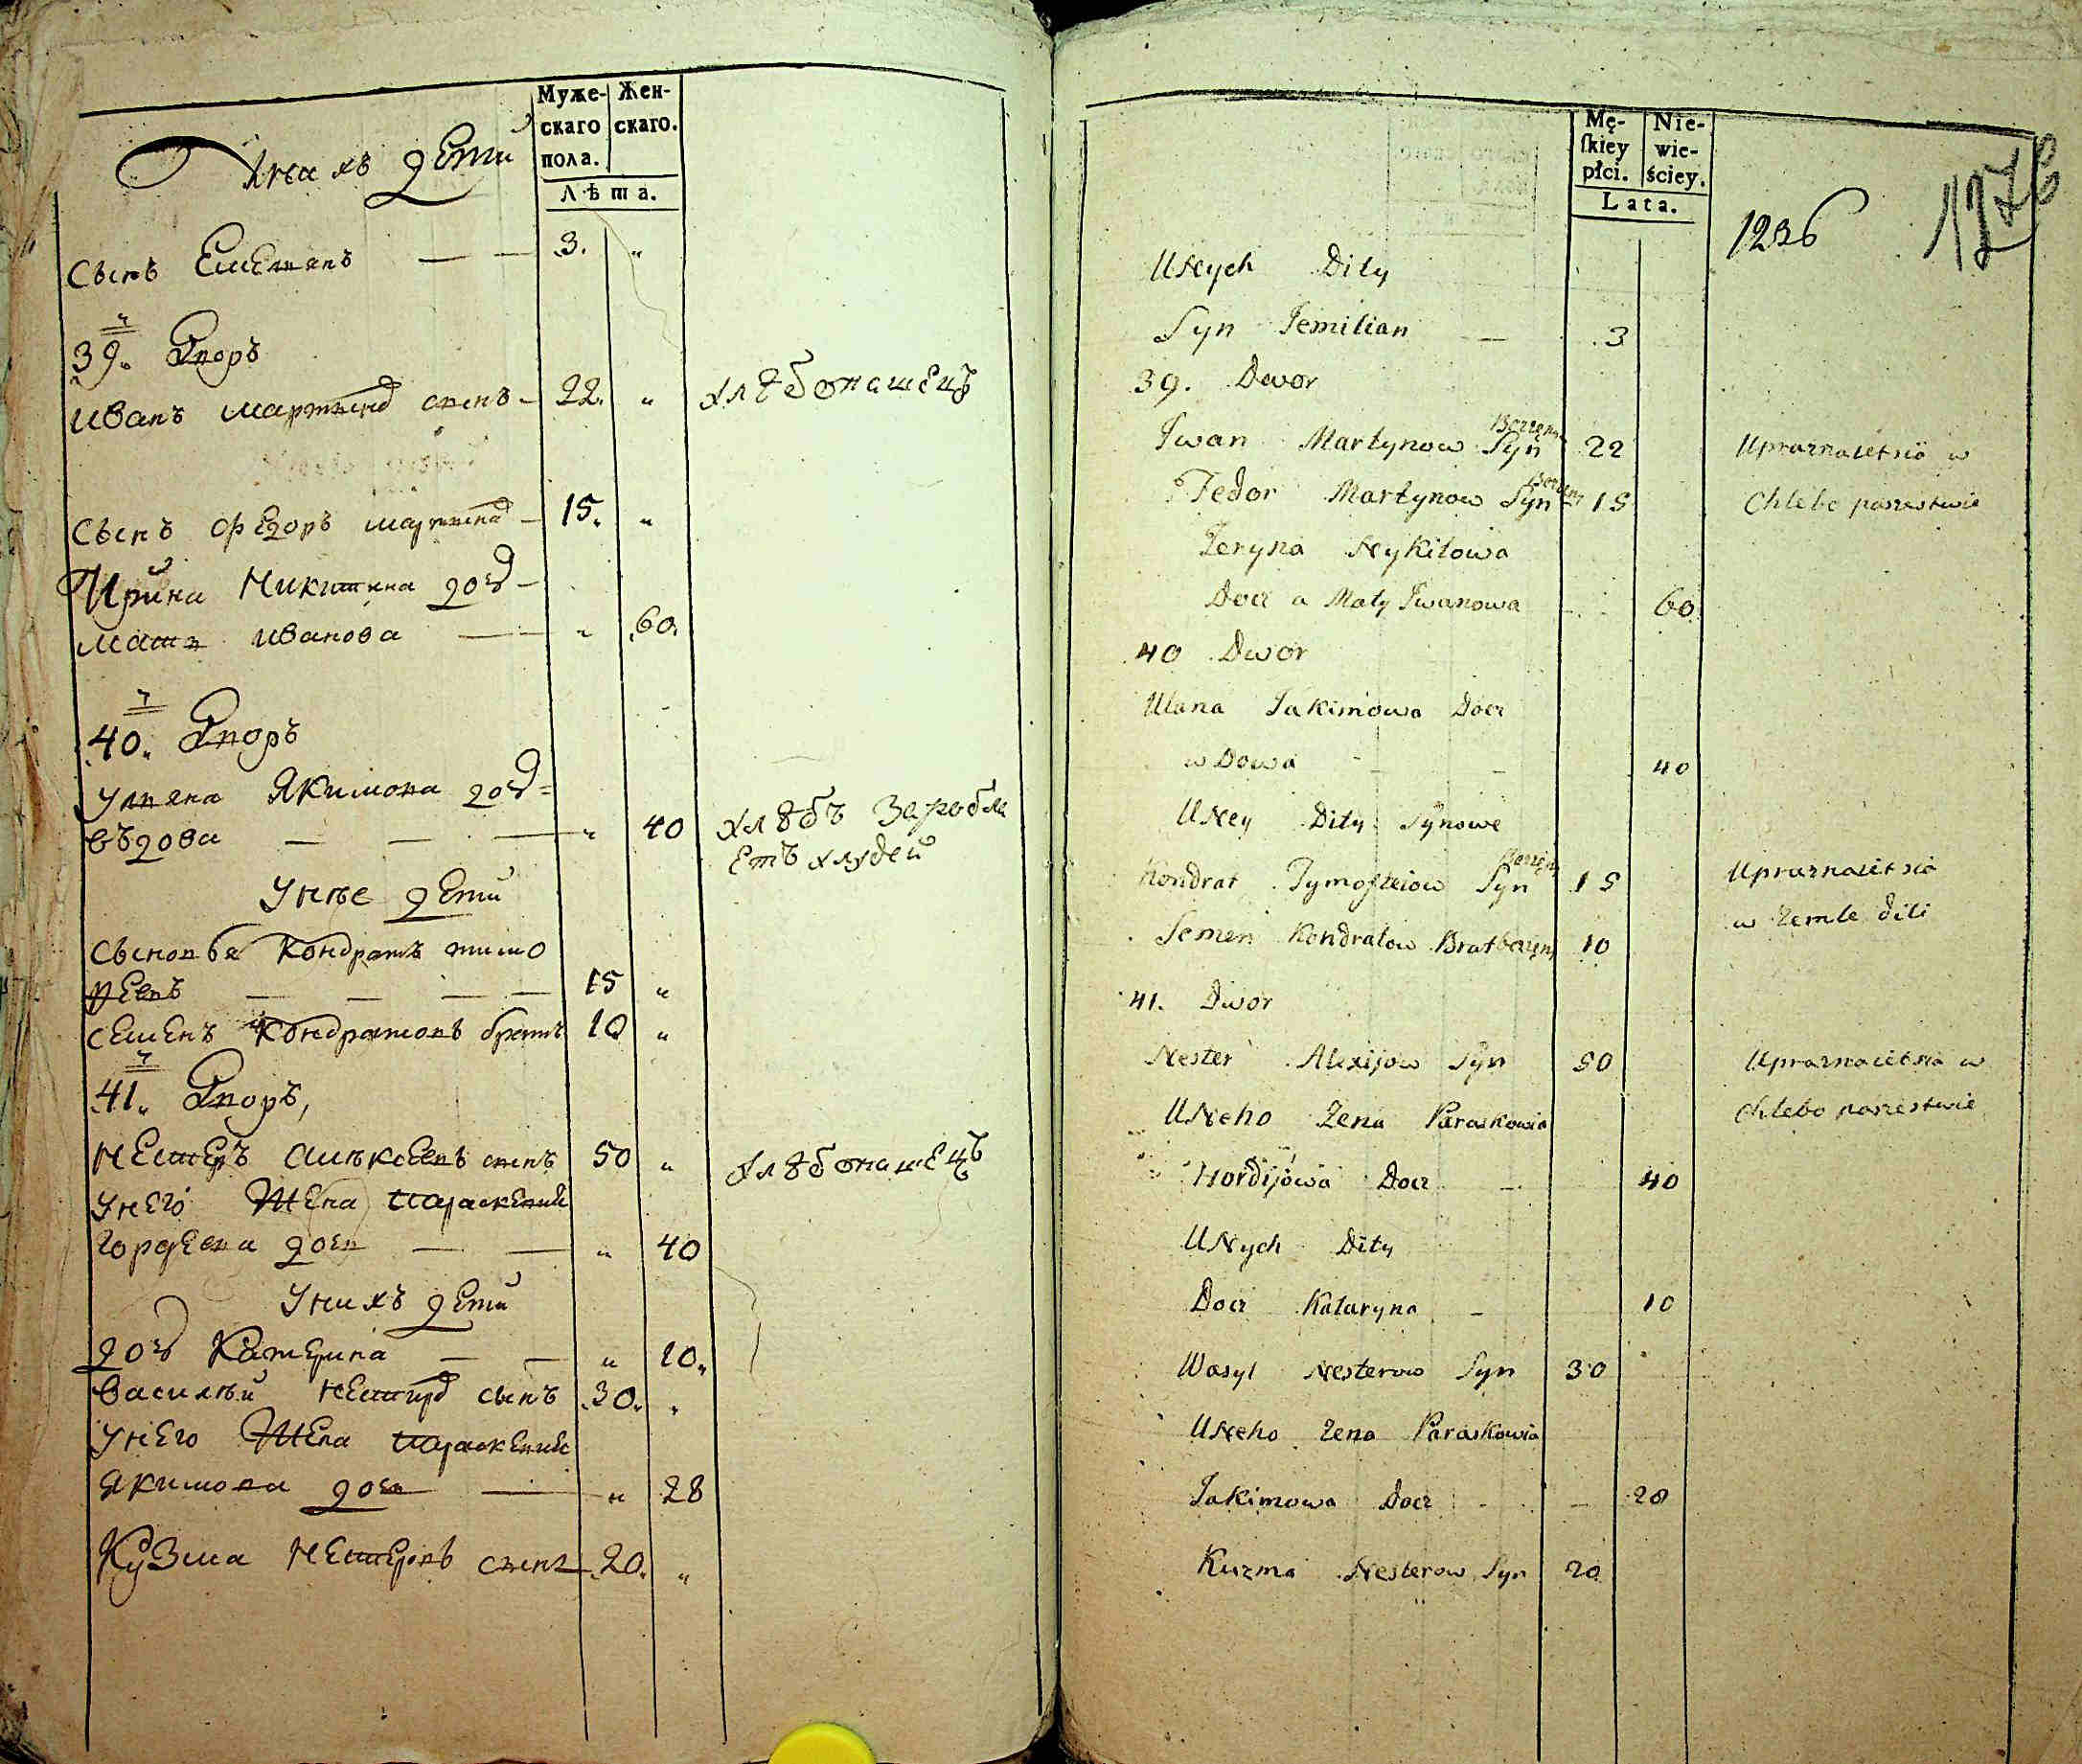 Муже- Жен-
скаго скаго.
пола.
Лѣта.
дети
Сынъ Емелянъ — — 3. "
39. Дворъ
Иванъ Мартынов сынъ - 22. " хлѣбопашецъ
Сынъ Федоръ Мартынов - 15. "
Ирина Никитина доч -
мать Иванова — " 60.
40. Дворъ
Уляна Якимова доч =
въдова — — — " 40 хлѣбъ заробля
етъ улюдей
Унъе дети
Сыновья Кондратъ тимо
феевъ — — — — 15 "
Семенъ Кондратовъ братъ 10 "
41. Дворъ,
Нестеръ Алексеевъ сынъ 50 " хлѣбопашецъ
Унего Жена Параскевия
Гордеева доч — — " 40
Унихъ дети
доч Катерина — — " 10.
Василѣй Нестеров сынъ .30. "
Унего Жена Параскевия
Якимова доч — " 28
Кузма Нестеровъ сынъ 20. "
Mę- Nie-
skiey wie-
płci. ściey.
Lata.
1236 1276
UNych Dity
Syn Jemilian — 3
39. Dwor
Iwan Martynow Syn 22 Upraznaietsia w
Fedor Martynow Syn 15 Chlebo paszestwie
Jeryna Nykitowa
Docz a Maty Iwanowa 60
40 Dwor
Ulana Jakimowa Docz
wDowa - - - 40
UNey Dity Synowe
Kondrat Tymofteiow Syn 15 Upraznaietsia
w Zemle dili
Semen Kondratow Brat 10
41. Dwor
Nester Alexijow Syn 50 Upraznaietsia w
UNeho Zena Paraskowia Chlebo paszestwie
Hordijowa Docz - 40
UNych Dity
Docz Kataryna - 10
Wasyl Nesterow Syn 30
UNeho Zena Paraskowia
Jakimowa Docz - - 28
Kuzma Nesterow Syn 20